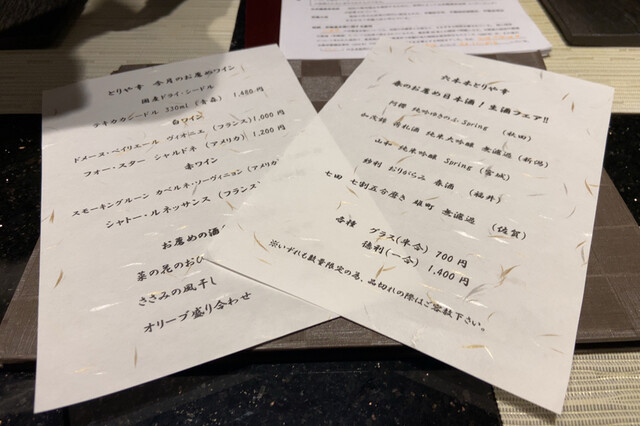 とりや幸 今月のお薦めワイン
国産ドライ・シードル
テキカカシードル 330ml (青森) 1,480円
白ワイン
ドメーヌ・ペイリエール ヴィオニエ (フランス) 1,000円
フォー・スター シャルドネ (アメリカ) 1,200円
赤ワイン
スモーキングルーン カベルネ・ソーヴィニヨン (アメリカ
シャトー・ルネッサンス (フランス
お薦めの酒
菜の花のおひ
ささみの風干し
オリーブ盛り合わせ
六本木とりや幸
春のお薦め日本酒!生酒フェア!!
阿櫻 純吟 Spring (秋田)
加茂錦 荷札酒 純米大吟醸 無濾過 (新潟)
山和 純米吟醸 Spring (宮城)
紗利 おりがらみ 春酒 (福井)
七田 七割五分磨き 雄町 無濾過 (佐賀)
各種 グラス(半合) 700円
徳利(一合) 1,400円
※いずれも数量限定の為、品切れの際はご容赦下さい。